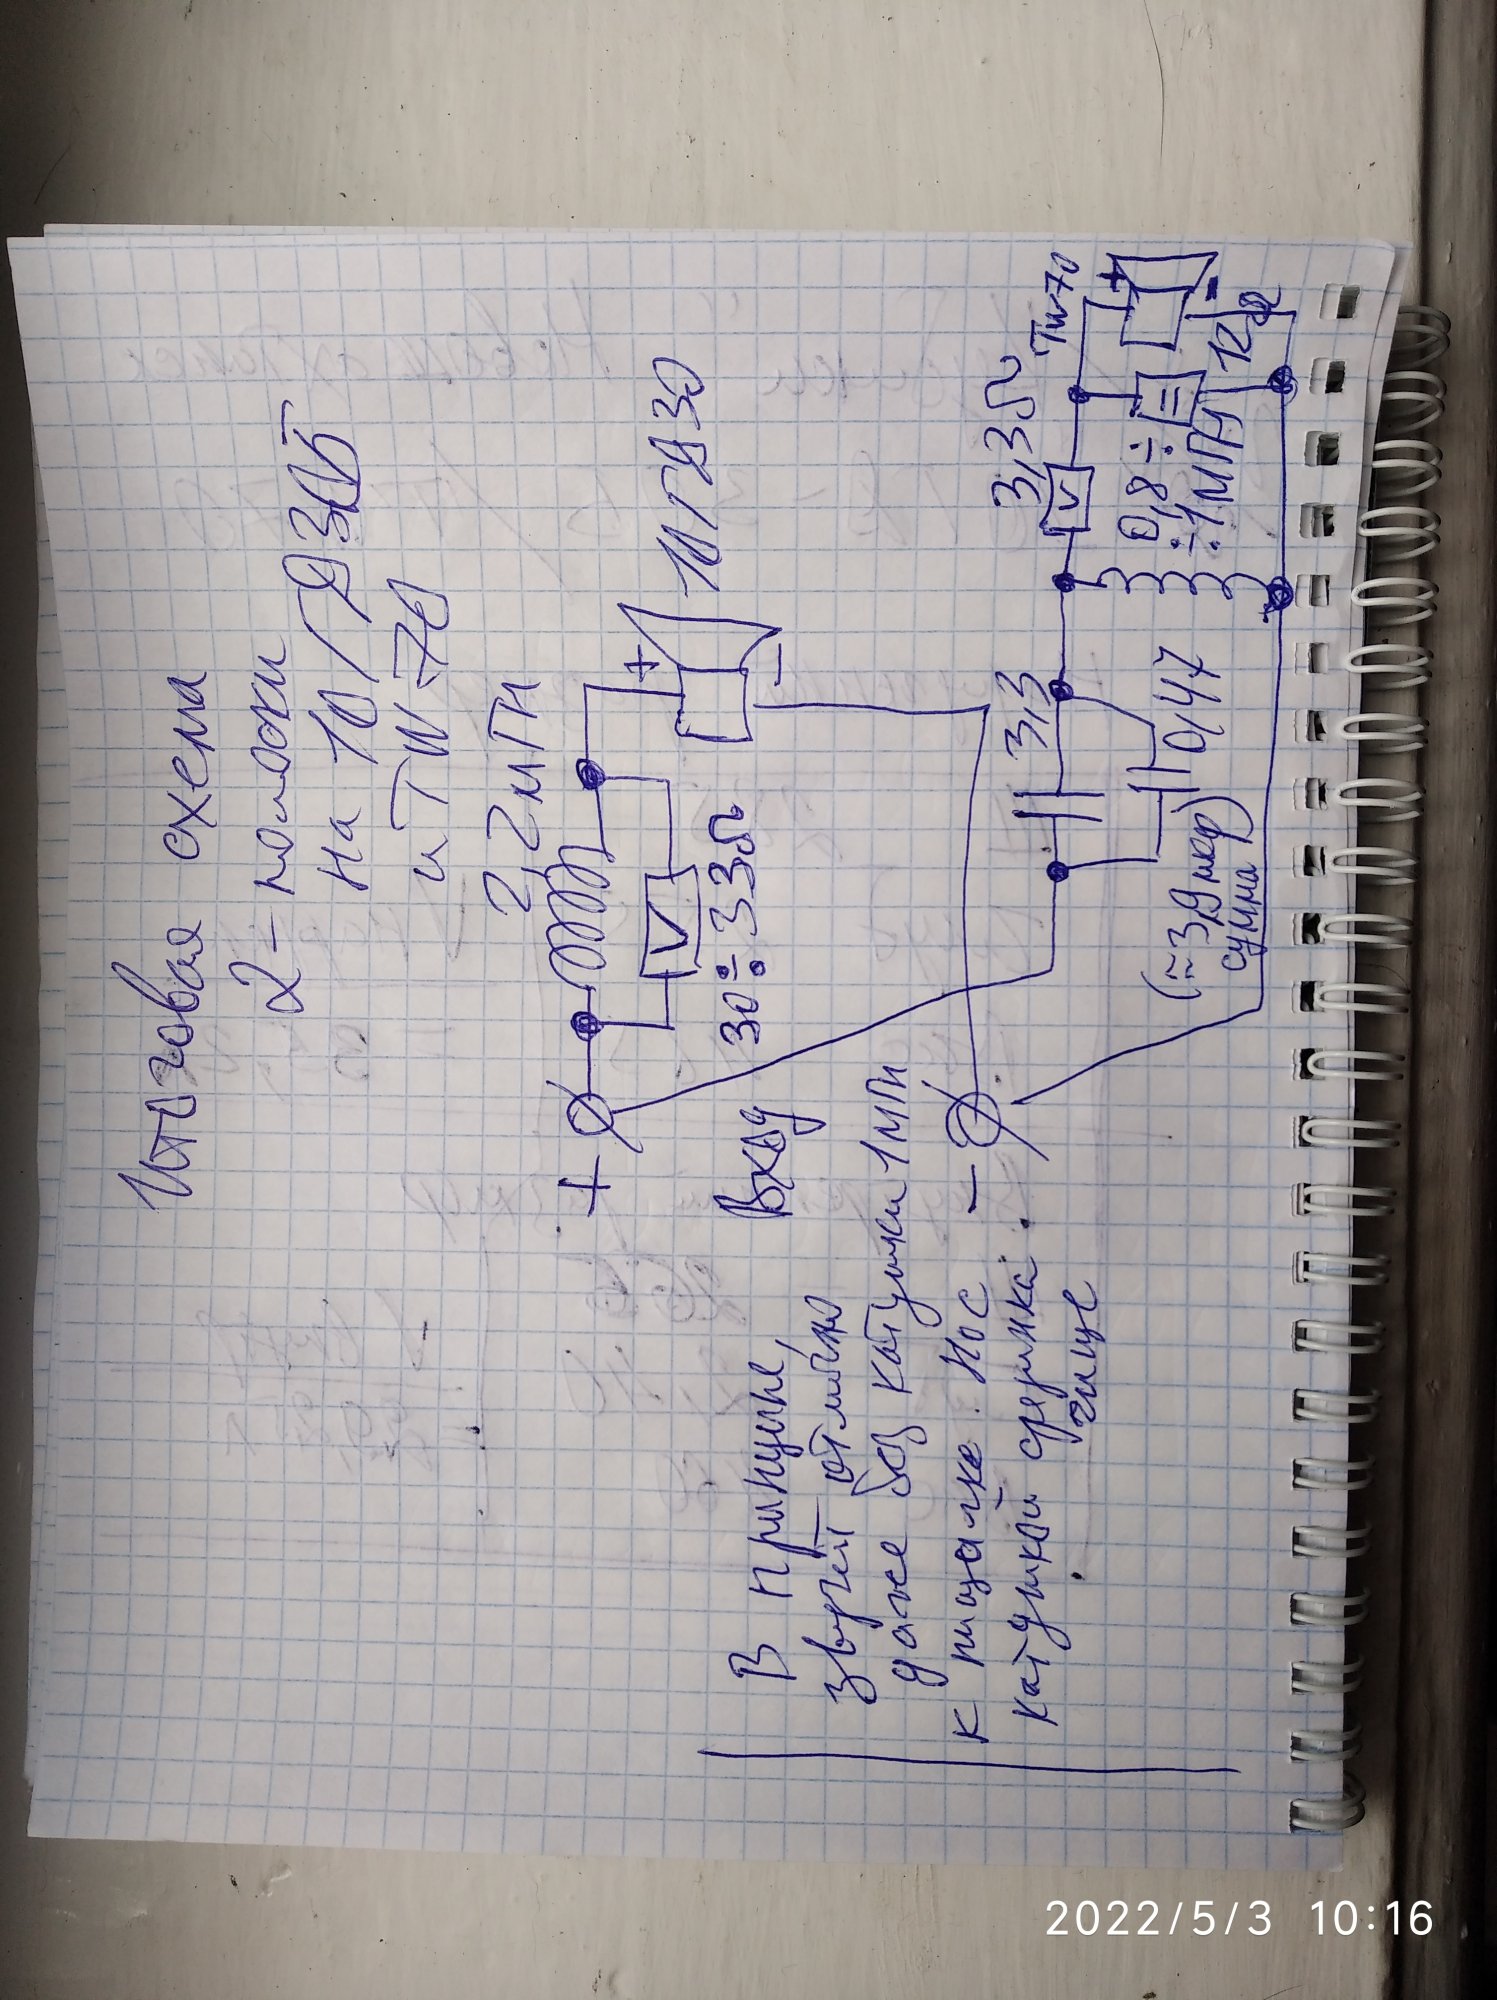 Итоговая схема
2-полоски
на 10ГД30Б
и TW-70
2,2мГн
+
+
-
10ГД30
30÷33Ω
Вход
-
3,3
0,47
(≈3,9мкф)
сумма
3,3Ω
TW70
+
-
0,8÷
÷1МГН
12Ω
В принципе,
звучит отлично
даже без катушки 1МГн
к пищалке. Но с
катушкой серединка
чище
.
2022/5/3 10:16